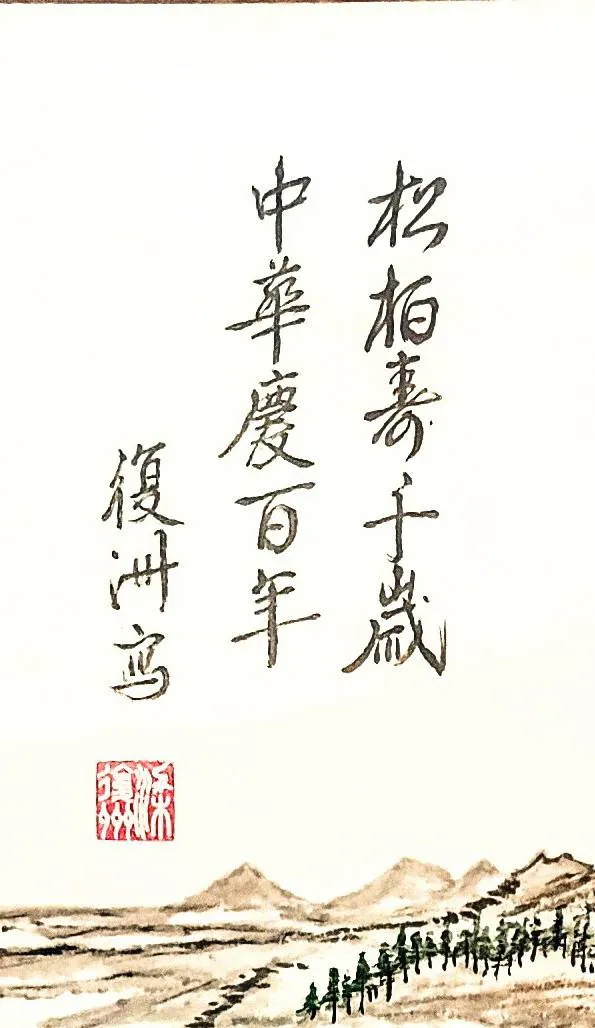 松柏壽千歲
中華慶百年
復洲寫
涂復洲